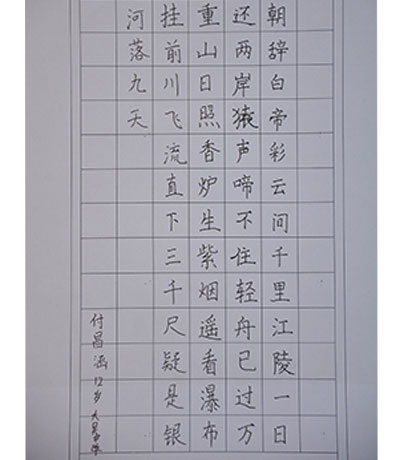 朝辞白帝彩云间千里江陵一日
还两岸猿声啼不住轻舟已过万
重山日照香炉生紫烟遥看瀑布
挂前川飞流直下三千尺疑是银
河落九天
付昌涵12岁